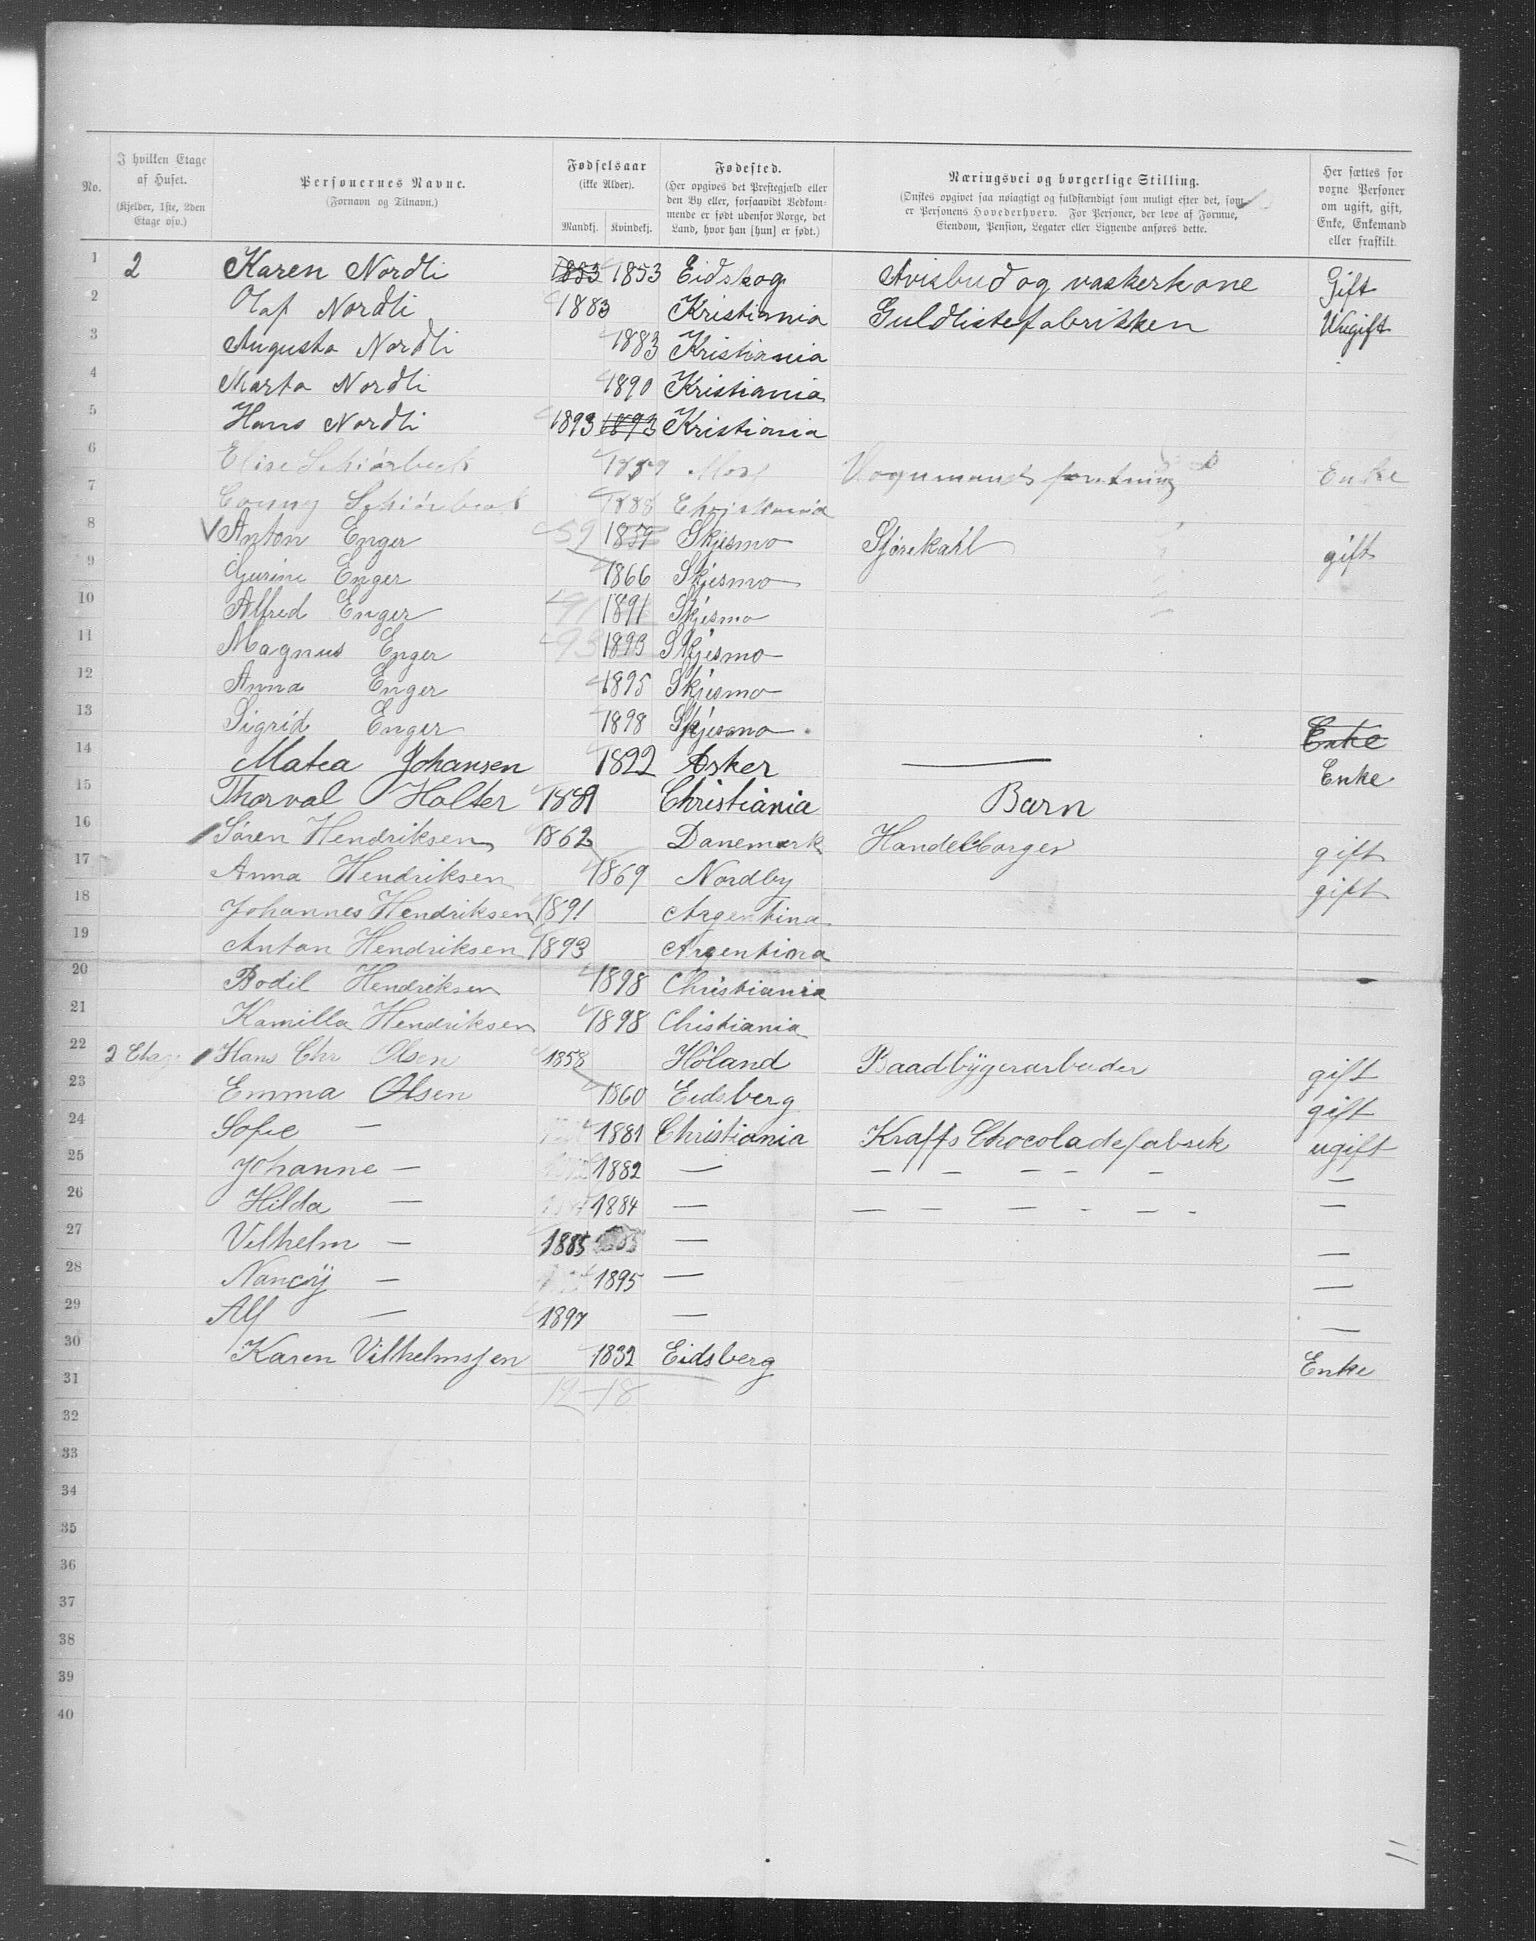 No. I hvilken Etage af Huset. (Kjelder, 1ste, 2den Etage osv.) Personernes Navne. (Fornavn og Tilnavn.) Fødselsaar (ikke Alder). Mandkj. Kvindekj. Fødested. (Her opgives det Prestegjæld eller den By eller, forsaavidt Vedkommende er født udenfor Norge, det Land, hvor han [hun] er født.) Næringsvei og borgerlige Stilling. (Ønskes opgivet saa nøiagtigt og fuldstændigt som muligt efter det, som er Personens Hovederhverv. For Personer, der leve af Formue, Eiendom, Pension, Legater eller Lignende anføres dette. Her sættes for voxne Personer om ugift, gift, Enke, Enkemand eller fraskilt.
1 2 Karen Nordli 1853 1853 Eidskog Avisbud og vaskerkone Gift
2 Olaf Nordli 1883 Kristiania Guldlistefabrikken Ungift
3 Augusta Nordli 1883 Kristiania
4 Marta Nordli 1890 Kristiania
5 Hans Nordli 1893 1893 Kristiania
6 Elise Schiørbeck 1859 Moss Vognmandsforretning Enke
7 Schiørbeck 1888 Christiania
8 Anton Enger 59 1859 Skjesmo Sjørekarl gift
9 Gurine Enger 1866 Skjesmo
10 Alfred Enger 91 1891 Skjesmo
11 Magnus Enger 93 1893 Skjesmo
12 Anna Enger 1895 Skjesmo
13 Sigrid Enger 1898 Skjesmo Enke
14 Matea Johansen 1822 Asker — Enke
15 Thorval Holter Christiania Barn
16 Søren Hendriksen 1862 Danemark Handelborger gift
17 Anna Hendriksen 1869 Nordby gift
18 Johannes Hendriksen 1891 Argentina
19 Anton Hendriksen 1893 Argentina
20 Bodil Hendriksen 1898 Christiania -
21 Kamilla Hendriksen 1898 Chistiania
22 2 Etage Hans Chr Olsen 1858 Höland Baadbÿgerarbeider gift
23 Emma Olsen 1860 Eidsberg gift
24 Sofie — 1881 Christiania Kraffs Chocoladefabrik ugift
25 Johanne — 1882 — — — — - - —
26 Hilda — 1884 — — — — - - - —
27 Vilhelm — 1885 — —
28 Nancÿ — 1895 — —
29 Alf — 1897 — —
30 Karen Vilhelmssen 1832 Eidsberg Enke
31 12-18
32
33
34
35
36
37
38
39
40